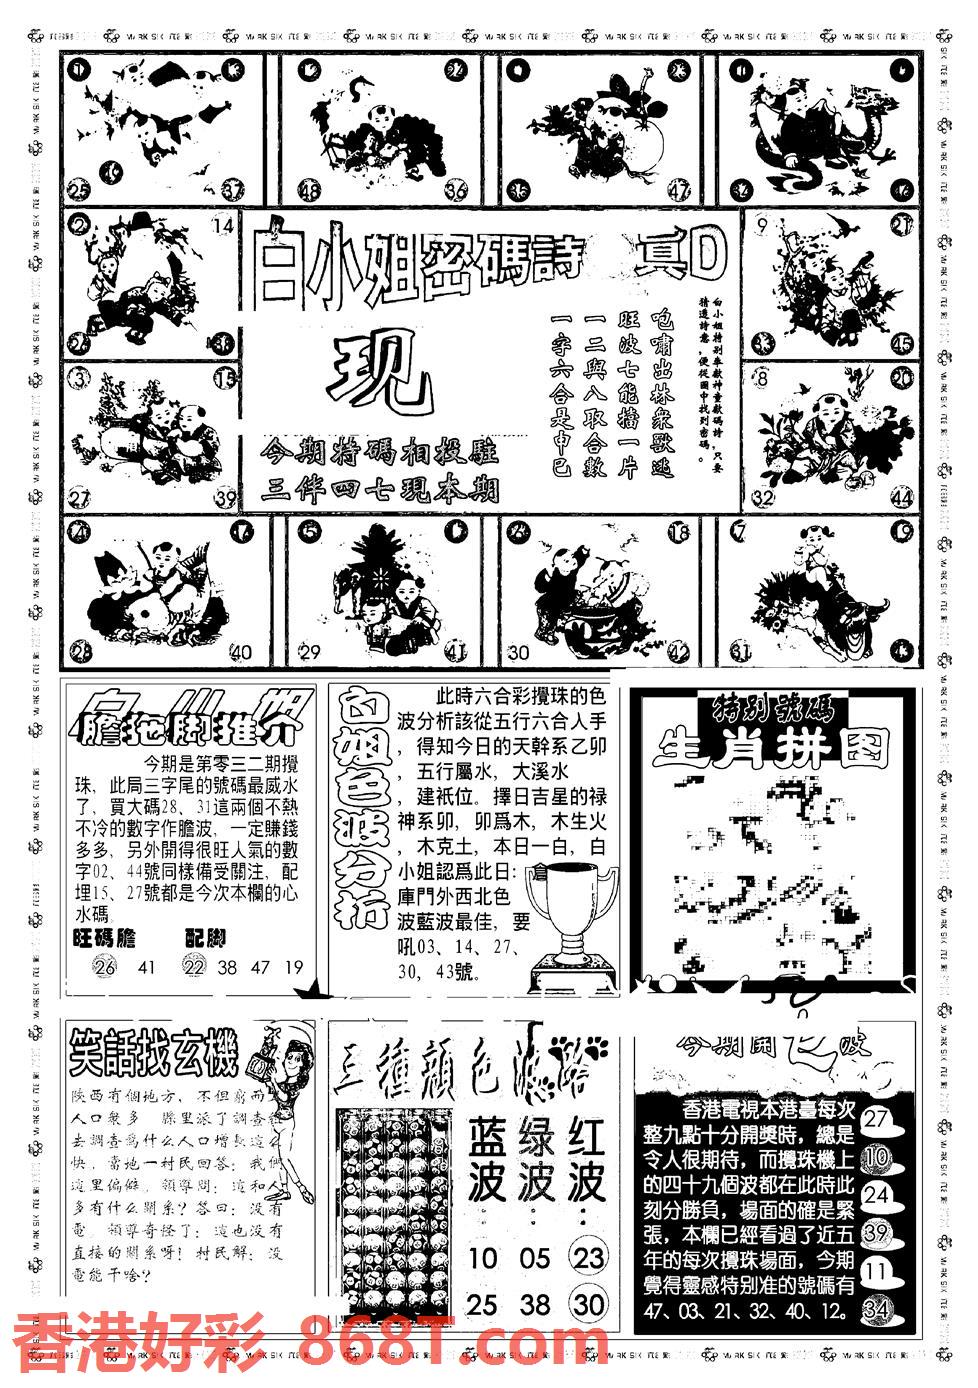 25 37
48 36
35 47
2 14
白小姐密碼詩 真D
9 21
现
白小姐特别奉獻神童獻碼詩，只要
猜透詩意，便從圖中找到密碼。
咆嘯出林衆獸逃
旺波七能擋一片
一二與八取合數
一字六合是申巳
今期特碼相投駐
三伴四七現本期
33 45
3 15
27 39
8 20
32 44
4
28 40
5
29 41
6 18
30 42
7 19
31
膽拖脚推介
今期是第零三二期攪
珠，此局三字尾的號碼最威水
了，買大碼28、31這兩個不熱
不冷的數字作膽波，一定賺錢
多多，另外開得很旺人氣的數
字02、44號同樣備受關注，配
埋15、27號都是今次本欄的心
水碼。
旺碼膽 配脚
26 41 22 38 47 19
白姐色波分析
此時六合彩攪珠的色
波分析該從五行六合人手
，得知今日的天幹系乙卯
，五行屬水，大溪水
，建祇位。擇日吉星的禄
神系卯，卯爲木，木生火
，木克土，本日一白，白
小姐認爲此日：倉
庫門外西北色
波藍波最佳，要
吼03、14、27、
30、43號。
特别號碼
生肖拼图
笑話找玄機
陝西有個地方，不但窮而
人口衆多 縣里派了調查組
去調查爲什么人口增長這么
快，當地一村民回答：我們
這里偏僻，領導問：這和人
多有什么關系？答曰：没有
電，領導奇怪了：這也没有
直接的關系呀！村民解：没
電能干啥？
三種顔色波路
蓝波： 绿波： 红波：
10 05 23
25 38 30
今期開 波
香港電視本港臺每次
整九點十分開獎時，總是
令人很期待，而攪珠機上
的四十九個波都在此時此
刻分勝負，場面的確是緊
張，本欄已經看過了近五
年的每次攪珠場面，今期
覺得靈感特别准的號碼有
47、03、21、32、40、12。
27
10
24
39
11
34
香港好彩 868T.com